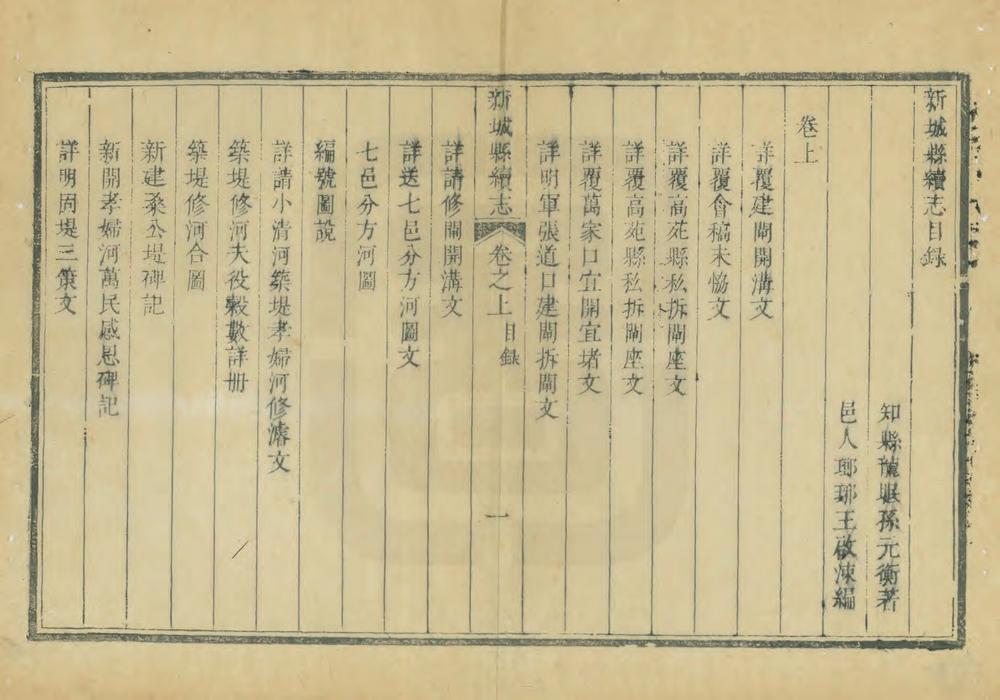 新城縣續志目録
知縣龍眠孫元衡著
邑人瑯琊王啟涑編
卷上
詳覆建閘開溝文
詳覆會稿未協文
詳覆高苑縣私拆閘座文
詳覆高苑縣私拆閘座文
詳覆萬家口宜開宜堵文
詳明軍張道口建閘拆閘文
新城縣續志 卷之上 目録 一
詳請修閘開溝文
詳送七邑分方河圖文
七邑分方河圖
編號圖說
詳請小清河築堤孝婦河修濬文
築堤修河夫役穀數詳册
築堤修河合圖
新建桑公堤碑記
新開孝婦河萬民感恩碑記
詳明固堤三策文